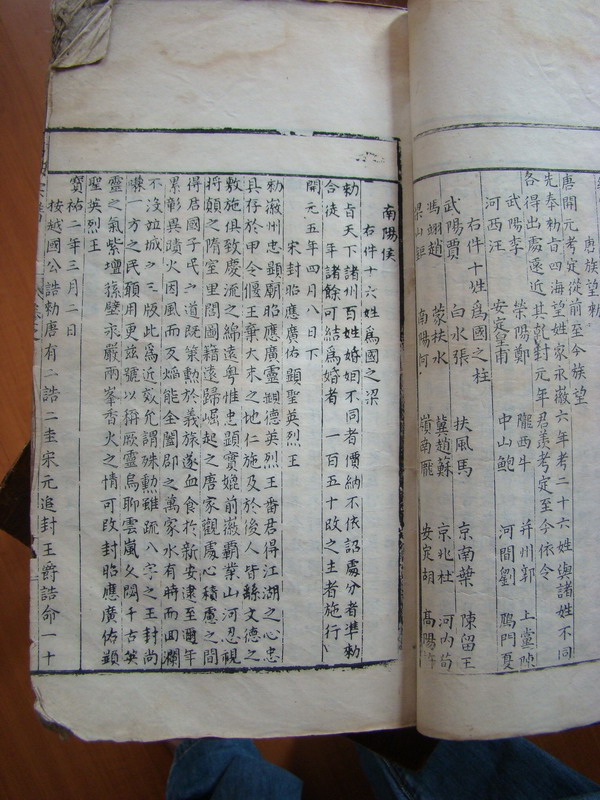 唐族望勅
唐開元考定從前至今族望
先奉勅旨四海望姓家永徽六年考二十六姓與諸姓不同
各得出處遠近其勅封元年君羨考定至今依令
武陽李 滎陽鄭 隴西牛 并州郭 上黨陳
河西汪 安定皇甫 中山鮑 河間劉 鴈門夏
右件十姓為國之柱
武陽賈 白水張 扶風馬 京南葉 陳留王
馮翊趙 蒙扶水 冀趙蘇 京兆杜 河內荀
梁山鉅 南陽何 嶺南龐 安定胡 高陽許
南陽侯
右件十六姓為國之梁
勅旨天下諸州百姓婚姻不同者價納不依詔處分者準勅
合徒 年諸餘可結為婚者 一百五十政之主者施行
開元五年四月八日下
宋封昭應廣佑顯聖英烈王
勅徽州忠顯廟昭應廣靈顯德英烈王番君得江湖之心忠
具存於甲令偃王棄大末之地仁施及於後人皆繇文德之
敷施俱致慶流之綿遠粵惟忠顯實媲前徽霸業山河忍視
將顛之隋室里閭圖籍遠歸崛起之唐家觀處心積慮之間
得君國子民之道既策勲於義族遂血食於新安逮至邇年
累彰異蹟火因風而反熖能全闔郡之萬家水有時而回瀾
不沒竝城之三版此為近效允謂殊勲雖疏八字之王封尚
嗛一方之民願用更玆號以稱厥靈烏聊雲嵐久閟千古英
靈之氣紫壇孫璧永嚴兩峯香火之情可改封昭應廣佑顯
聖英烈王
寶祐二年三月二日
按越國公誥勅唐有二誥二圭宋元追封王爵誥命一十